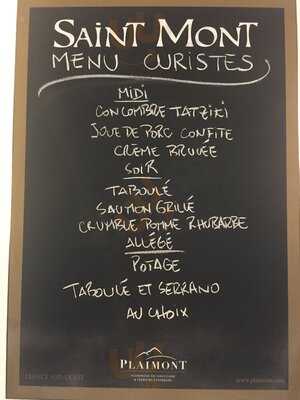 SAINT MONT
MENU CURISTES
MIDI
CONCOMBRE TATZIKI
JOUE DE PORC CONFITE
CREME BRULEE
SOIR
TABOULÉ
SAUMON GRILLÉ
CRUMBLE POMME RHUBARBE
ALLÉGÉ
POTAGE
TABOULÉ ET SERRANO
AU CHOIX
PLAIMONT
FRANCE SUD-OUEST
www.plaimont.com